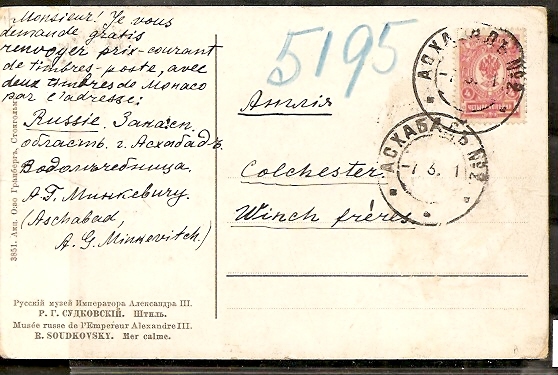 Monsieur! Je vous
demande gratis
renvoyer prix-courant
de timbres-poste, avec
deux timbres de Monaco
par l'adresse:
Russie. Закасп.
область. г. Асхабадъ.
Водолѣчебница.
А. Г. Минкевичу.
(Aschabad,
A. G. Minkevitch.)
5195
Англія
Colchester
Winch frères.
АСХАБАДЪ №2
АСХАБАДЪ №2
-7 6. 11
3851. Акц. Общ. Гранбергъ, Стокгольмъ
Русскій музей Императора Александра III.
Р. Г. СУДКОВСКІЙ. Штиль.
Musée russe de l'Empereur Alexandre III.
R. SOUDKOVSKY. Mer calme.